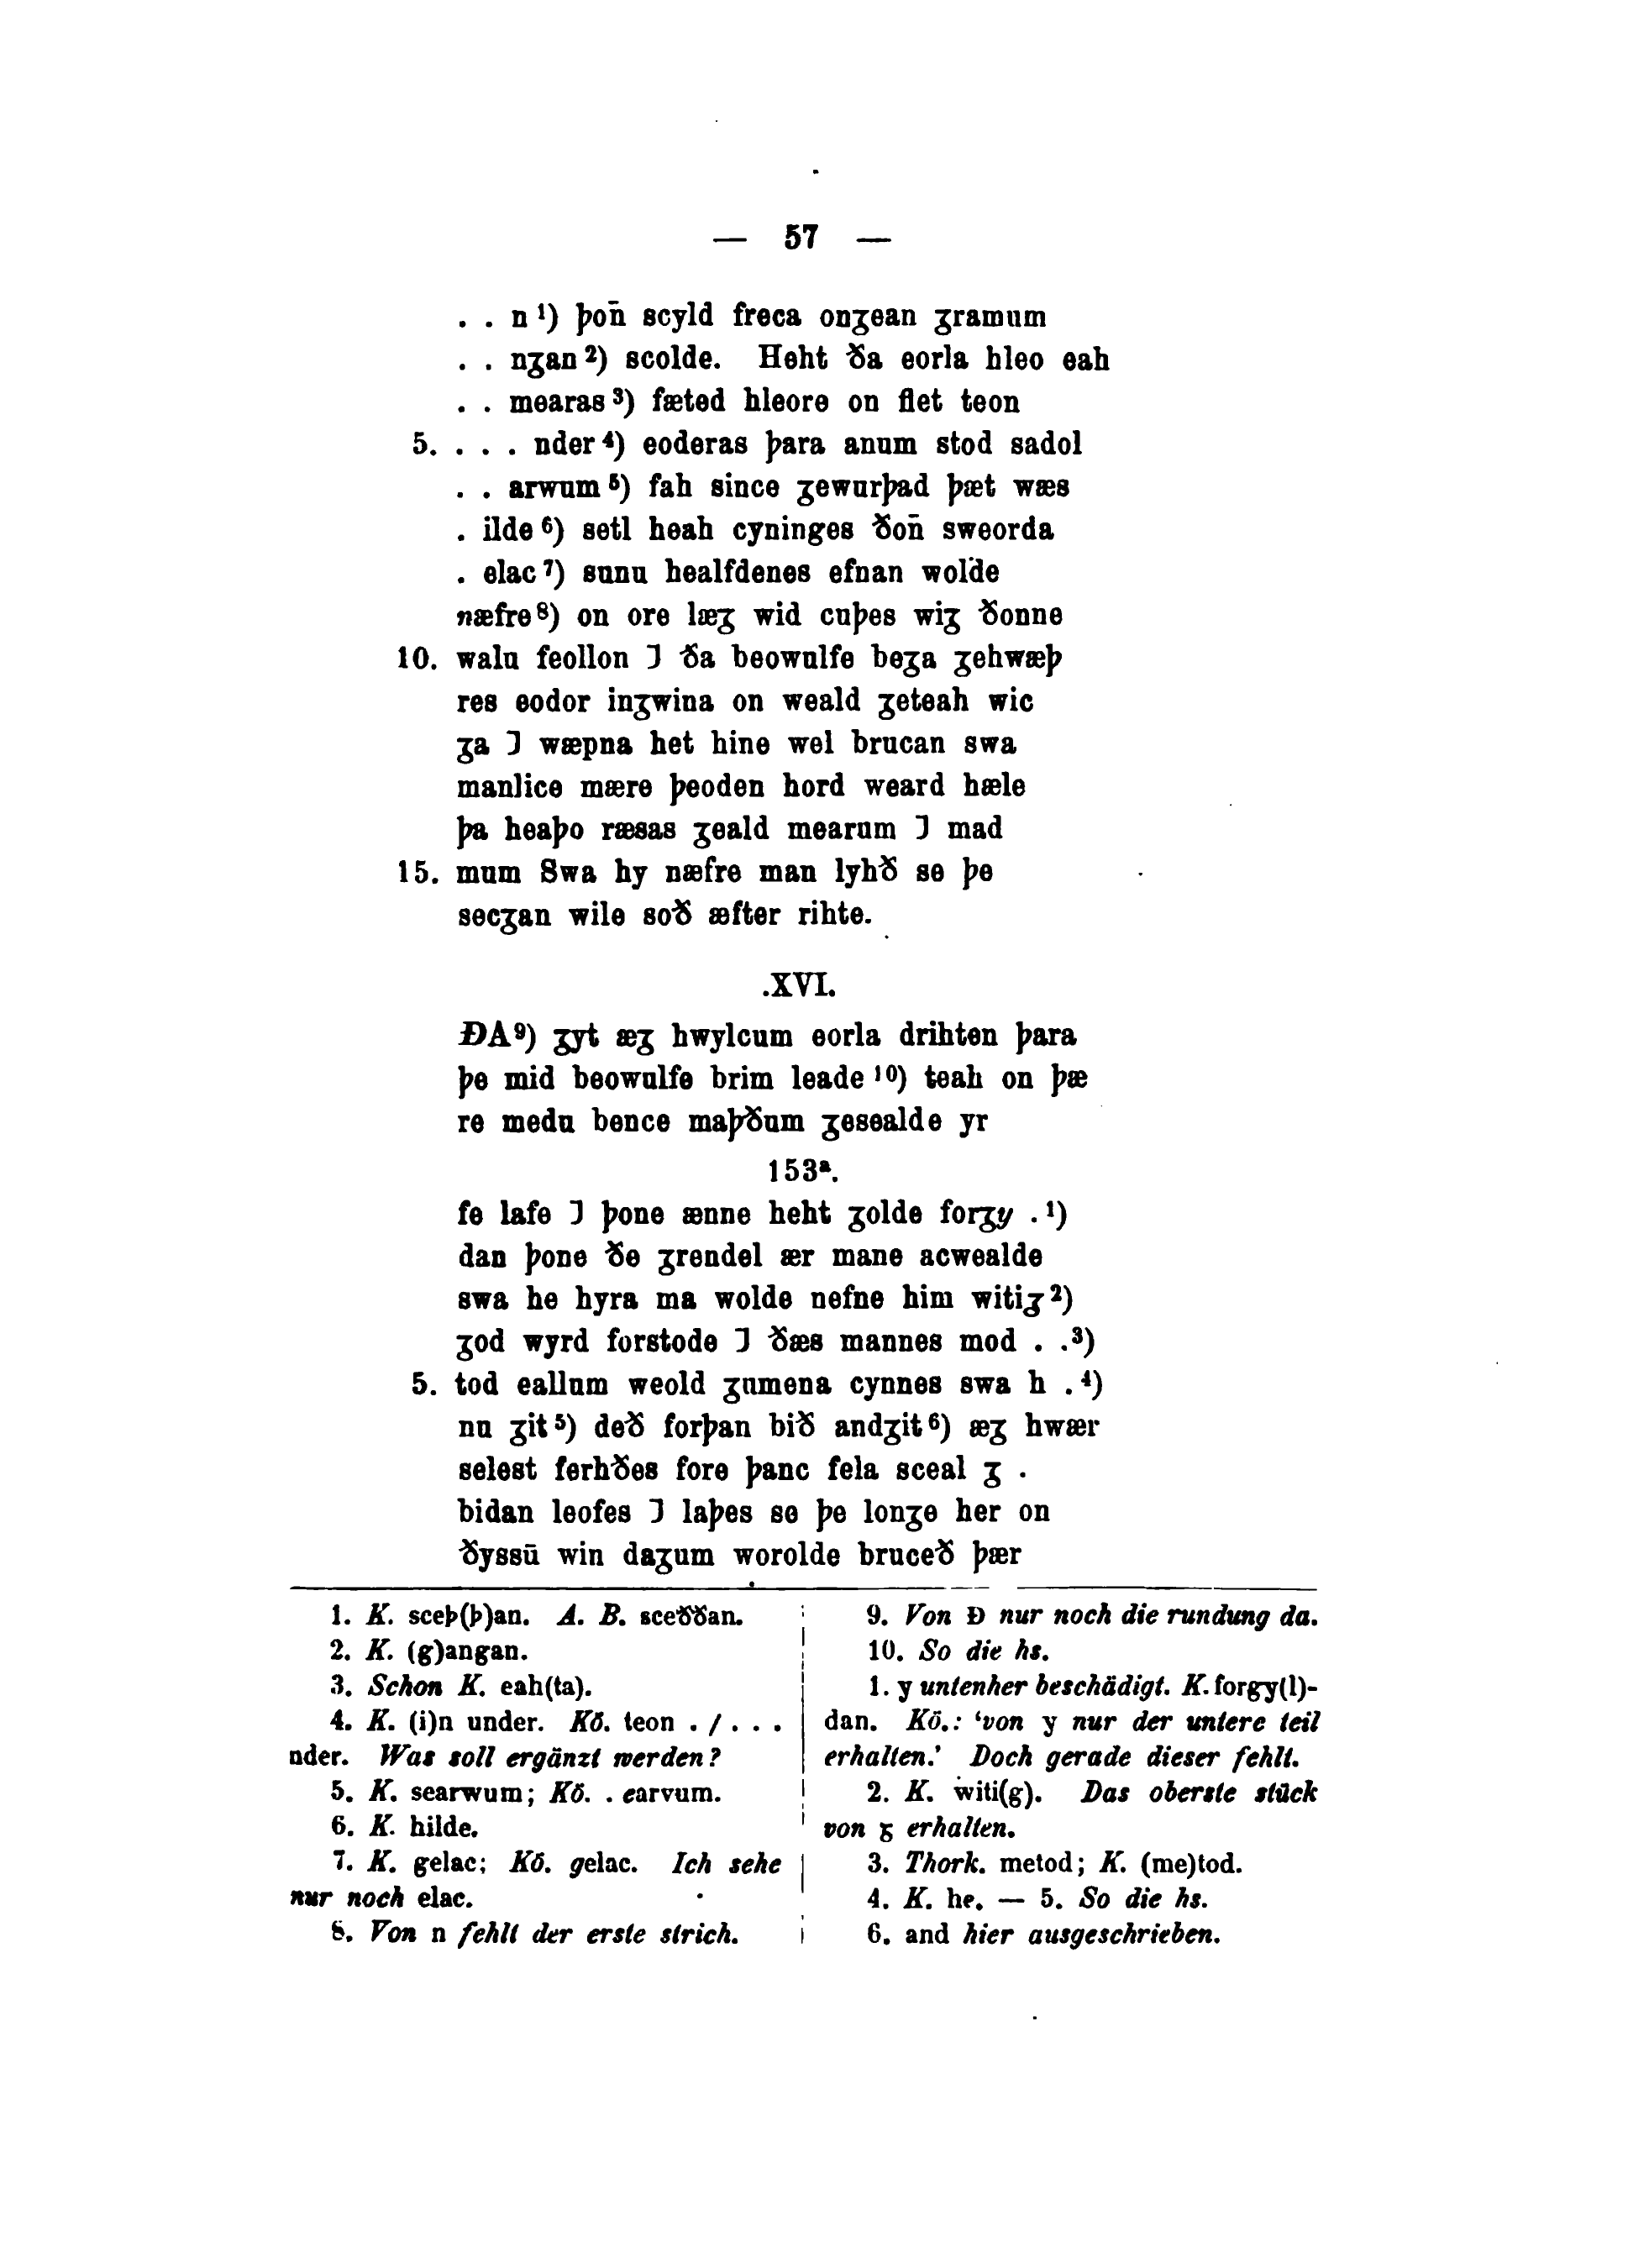 — 57 —
. . n ¹) þon̄ scyld freca onʒean ʒramum
. . nʒan ²) scolde. Heht ða eorla hleo eah
. . mearas ³) fæted hleore on flet teon
5. . . . nder ⁴) eoderas þara anum stod sadol
. . arwum ⁵) fah since ʒewurþad þæt wæs
. ilde ⁶) setl heah cyninges ðon̄ sweorda
. elac ⁷) sunu healfdenes efnan wolde
næfre ⁸) on ore læʒ wid cuþes wiʒ ðonne
10. walu feollon ⁊ ða beowulfe beʒa ʒehwæþ
res eodor inʒwina on weald ʒeteah wic
ʒa ⁊ wæpna het hine wel brucan swa
manlice mære þeoden hord weard hæle
þa heaþo ræsas ʒeald mearum ⁊ mad
15. mum Swa hy næfre man lyhð se þe
secʒan wile soð æfter rihte.
.XVI.
ÐA ⁹) ʒyt æʒ hwylcum eorla drihten þara
þe mid beowulfe brim leade ¹⁰) teah on þæ
re medu bence maþðum ʒesealde yr
153ª.
fe lafe ⁊ þone ænne heht ʒolde forʒy . ¹)
dan þone ðe ʒrendel ær mane acwealde
swa he hyra ma wolde nefne him witiʒ ²)
ʒod wyrd forstode ⁊ ðæs mannes mod . . ³)
5. tod eallum weold ʒumena cynnes swa h . ⁴)
nu ʒit ⁵) deð forþan bið andʒit ⁶) æʒ hwær
selest ferhðes fore þanc fela sceal ʒ .
bidan leofes ⁊ laþes se þe lonʒe her on
ðyssū win daʒum worolde bruceð þær
1. K. sceþ(þ)an. A. B. sceððan.
2. K. (g)angan.
3. Schon K. eah(ta).
4. K. (i)n under. Kö. teon . / . . .
nder. Was soll ergänzt werden?
5. K. searwum; Kö. . earvum.
6. K. hilde.
7. K. gelac; Kö. gelac. Ich sehe
nur noch elac.
8. Von n fehlt der erste strich.
9. Von Ð nur noch die rundung da.
10. So die hs.
1. y untenher beschädigt. K. forgy(l)-
dan. Kö.: ‘von y nur der untere teil
erhalten.’ Doch gerade dieser fehlt.
2. K. witi(g). Das oberste stück
von ʒ erhalten.
3. Thork. metod; K. (me)tod.
4. K. he. — 5. So die hs.
6. and hier ausgeschrieben.